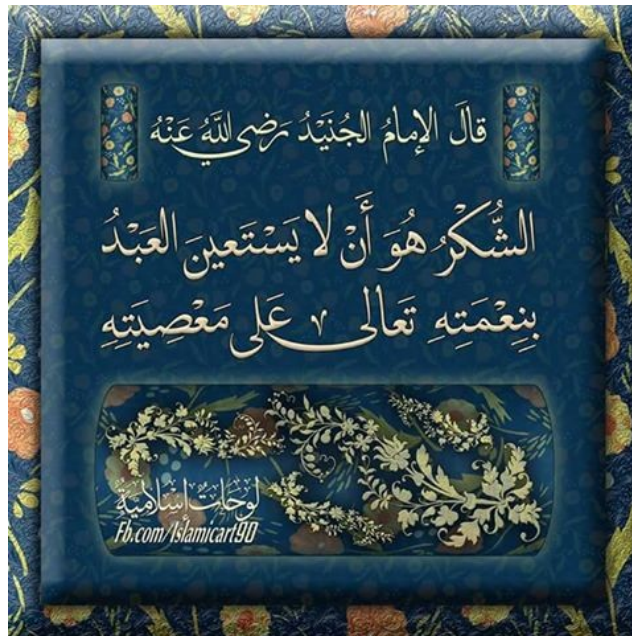 قالَ الإمامُ الجُنَيْدُ رَضي اللَّهُ عَنْهُ
الشُّكْرُ هُوَ أَنْ لا يَسْتَعينَ العَبْدُ
بِنِعْمَتِهِ تَعالى عَلى مَعْصِيَتِهِ
لوحات إسلامية
Fb.com/Islamicart90